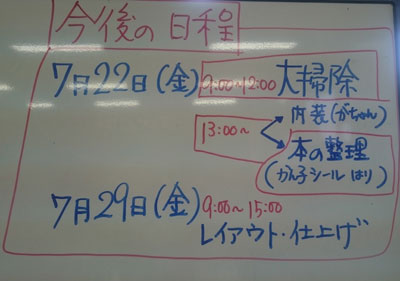 今後の日程
7月22日(金) 9:00~12:00 大掃除
13:00~ 内装(がちゃん)
本の整理
(かん子シール はり)
7月29日(金) 9:00~15:00
レイアウト・仕上げ